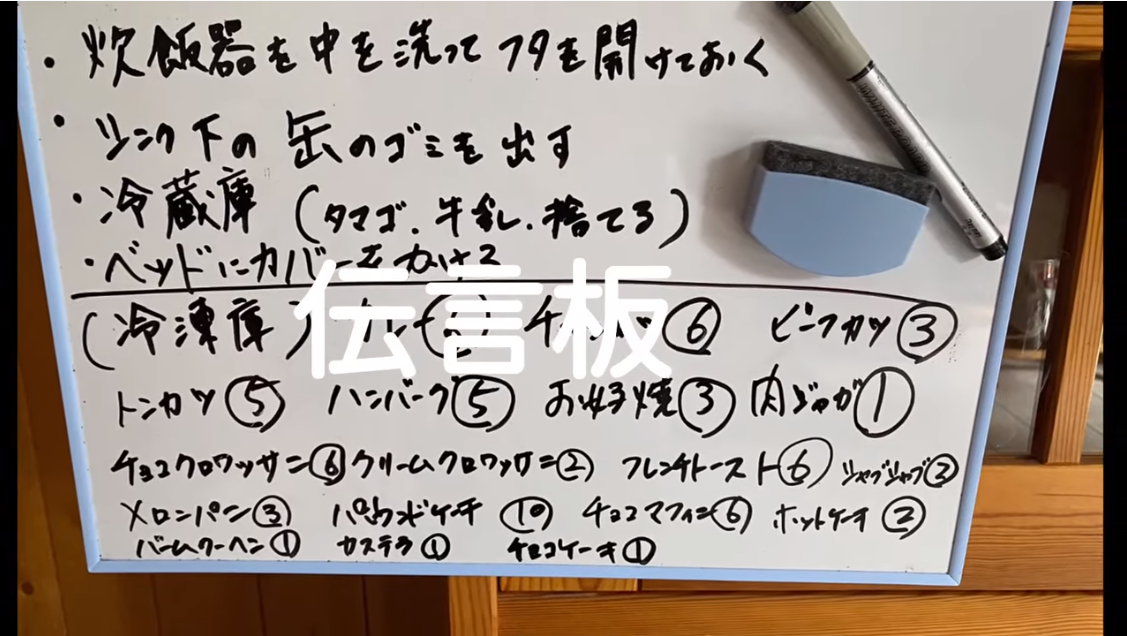 ・炊飯器を中を洗ってフタを開けておく
・シンク下の缶のゴミを出す
・冷蔵庫(タマゴ.牛乳.捨てる)
・ベッドにカバーをかける
伝言板
(冷凍庫) ⑥ ビーフカツ③
トンカツ⑤ ハンバーグ⑤ お好焼③ 肉ジャガ①
チョコクロワッサン⑥ クリームクロワッサン② フレンチトースト⑥ シャブシャブ②
メロンパン③ パウンドケーキ⑩ チョコマフィン⑥ ホットケーキ②
バームクーヘン① カステラ① チョコケーキ①